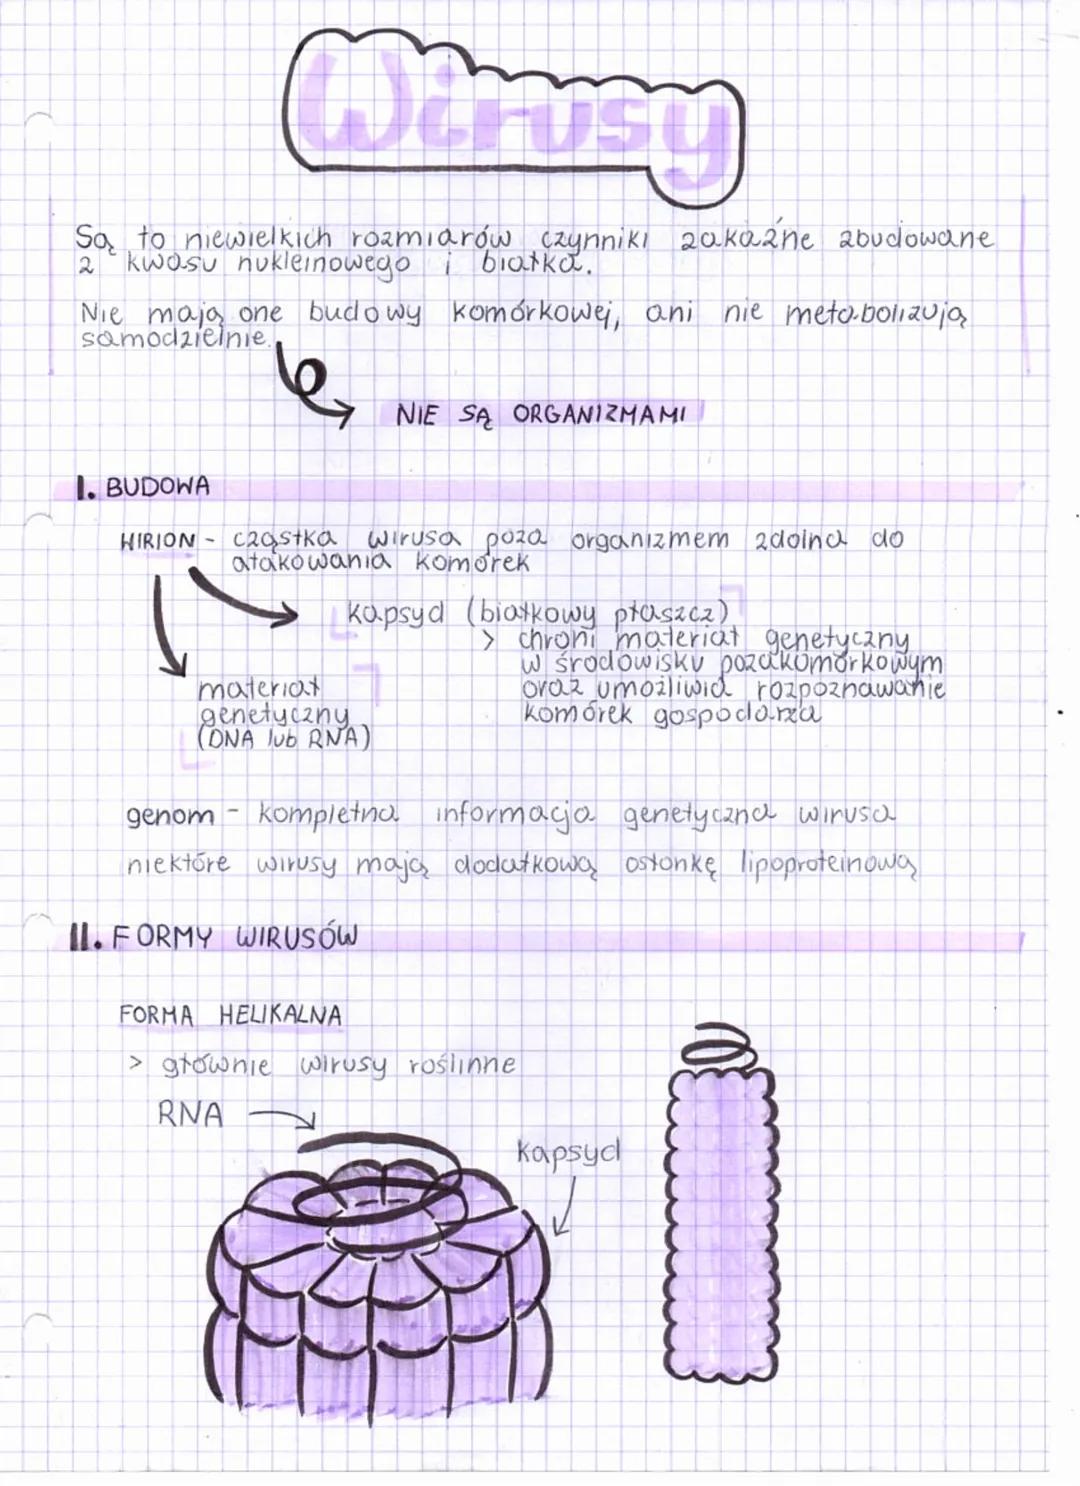 Wirusy
Są to niewielkich rozmiarów czynniki zakaźne zbudowane
z kwasu nukleinowego i białka.
Nie mają one budowy komórkowej, ani nie metabolizują
samodzielnie.
NIE SĄ ORGANIZMAMI
I. BUDOWA
WIRION - cząstka wirusa poza organizmem zdolna do
atakowania komórek
kapsyd (białkowy płaszcz)
> chroni materiał genetyczny
w środowisku pozakomórkowym
oraz umożliwia rozpoznawanie
komórek gospodarza
materiał
genetyczny
(DNA lub RNA)
genom - kompletna informacja genetyczna wirusa
niektóre wirusy mają dodatkową osłonkę lipoproteinową
II. FORMY WIRUSÓW
FORMA HELIKALNA
> głównie wirusy roślinne
RNA
kapsyd